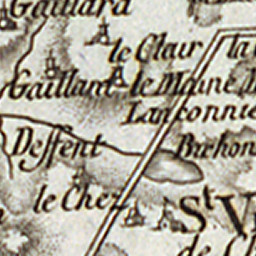 Gaillard
le Clair la
Gaillant le Maine
Lanconnie
Deffent Brehon
le Chez
St V
de Ch